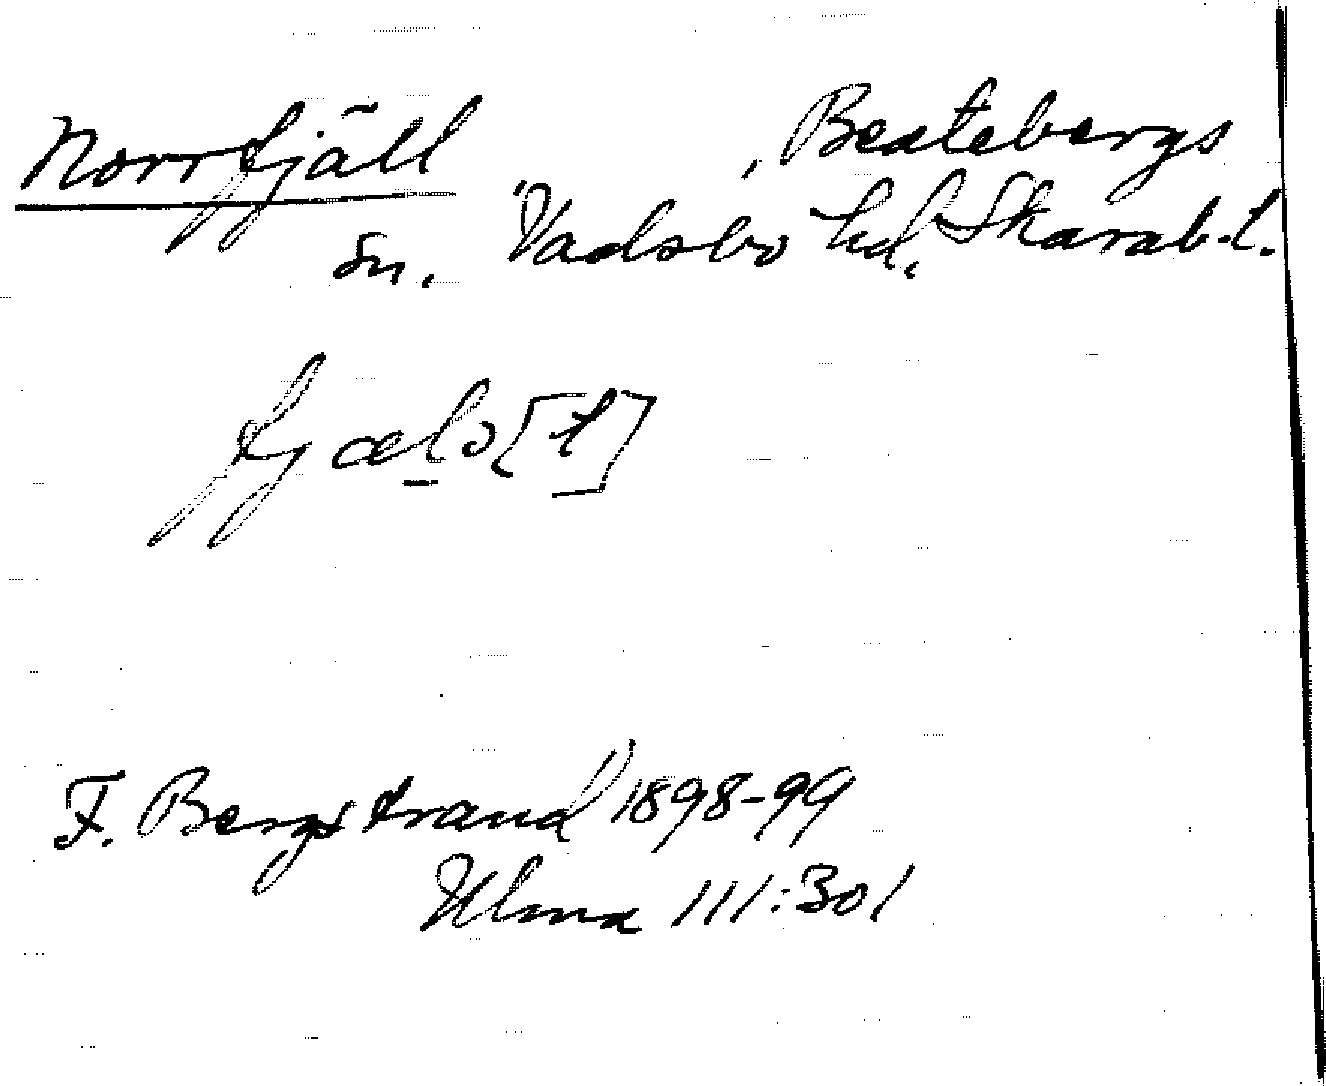 Norrfjäll , Beatebergs
sn. Vadsbo hd, Skarab. l.
fjælo[t]
F. Bergstrand 1898-99
Ulma 111:301